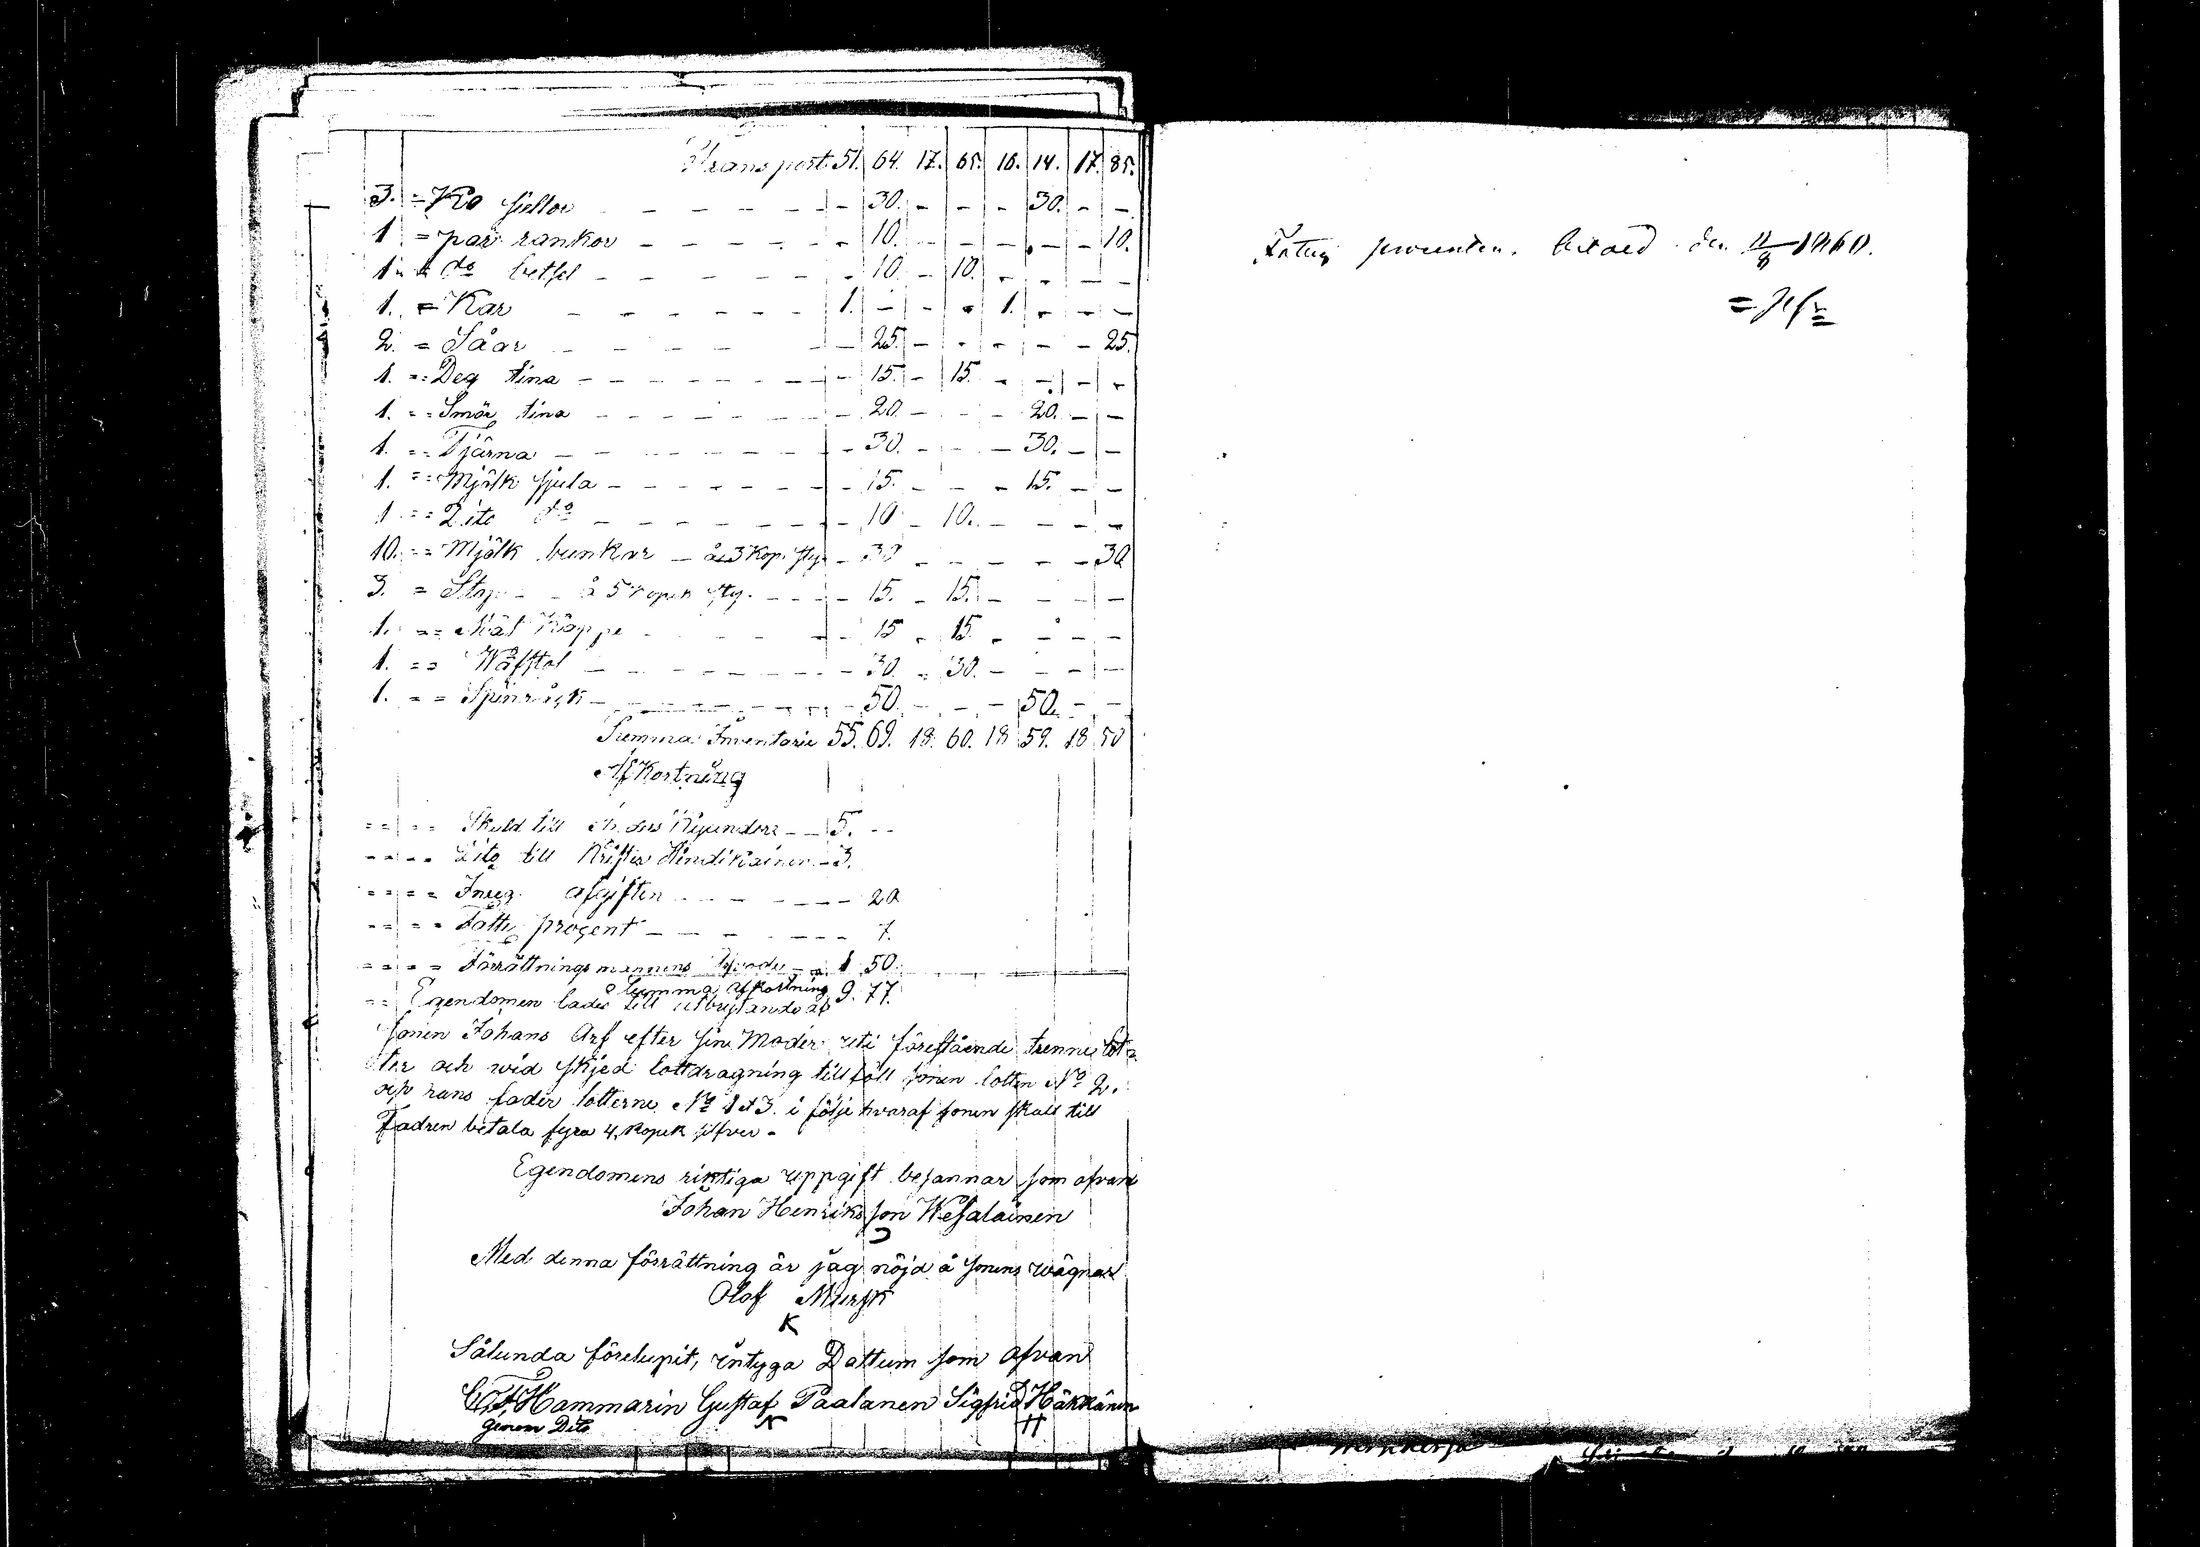 Transport. 51. 64. 17. 65. 16. 14. 17. 85.
3. = Ko - - - - - - 30. - - - 30. - -
1 = par rankor - - - - - 10. - - - - 10.
1 = do betsel - - - - - 10. - 10. - - - -
1. = Kar - - - - - - 1. - - - 1. - - -
2. = Såar - - - - - 25. - - - - - 25.
1. = Deg tina - - - - - - 15. - 15. - - - -
1. = Smör tina - - - - - - 20. - - - 20. - -
1. = Tjärna - - - - - - 30. - - - 30. - -
1. = Mjölk - - - - - - 15. - - - 15. - -
1 = Dito do - - - - - - 10 - 10. - - - -
10. = Mjölk bunkar - à 3 Kop. sty. - 30 - - - - - 30
3. = Stop - - à 5 Kopek sty. - - - 15. - 15. - - - -
1. = Mät Kappe - - - - 15 - 15. - - - -
1. = Wäfstol - - - - - - 30. - 30. - - - -
1. = Spinråck - - - - - - 50. - - - 50. - -
Summa Inventarie 55. 69. 18. 60. 18 59. 18 50
Afkortning
= = Skuld till - - 5. - -
= = Dito till - 3.
= = afgiften - - - - - 20
= = Fattig procent - - - - - - 7.
= = Förrättningsmannens - 1 50.
Summa afkortning 9. 77.
= = Egendomen lades till utbrytande af
sonen Johans Arf efter sin Moder uti förestående trenne lot=
ter och wid skjed lottdragning tillföll sonen lotten No 2.
och hans fader lotterne No 1 o 3. i följe hvaraf sonen skall till
Fadren betala fyra 4, kopek silfver -
Egendomens riktiga uppgift besannar som ofvan
Johan Henriksson Wesalainen
Med denna förrättning är jag nöjd å sonens wägnar
Olof Mursk
K
Sålunda förelupit, intyga Dattum som ofvan
C. F. Hammarin Gustaf Paalanen Sigfrid Häkkänen
genom Dito K H
procenten. betald den 11/8 1860.